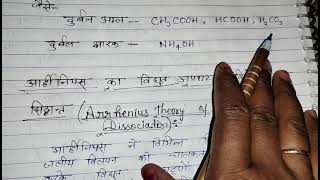 जैसे-
दुर्बल अम्ल - CH3COOH, HCOOH, H2CO3
दुर्बल क्षारक - NH4OH
का विद्युत अपघटन
सिद्धान्त (Arrhenius Theory of
Dissociation):-
ने विभिन्न
जलीय विलयन की चालकता
करके विद्युत